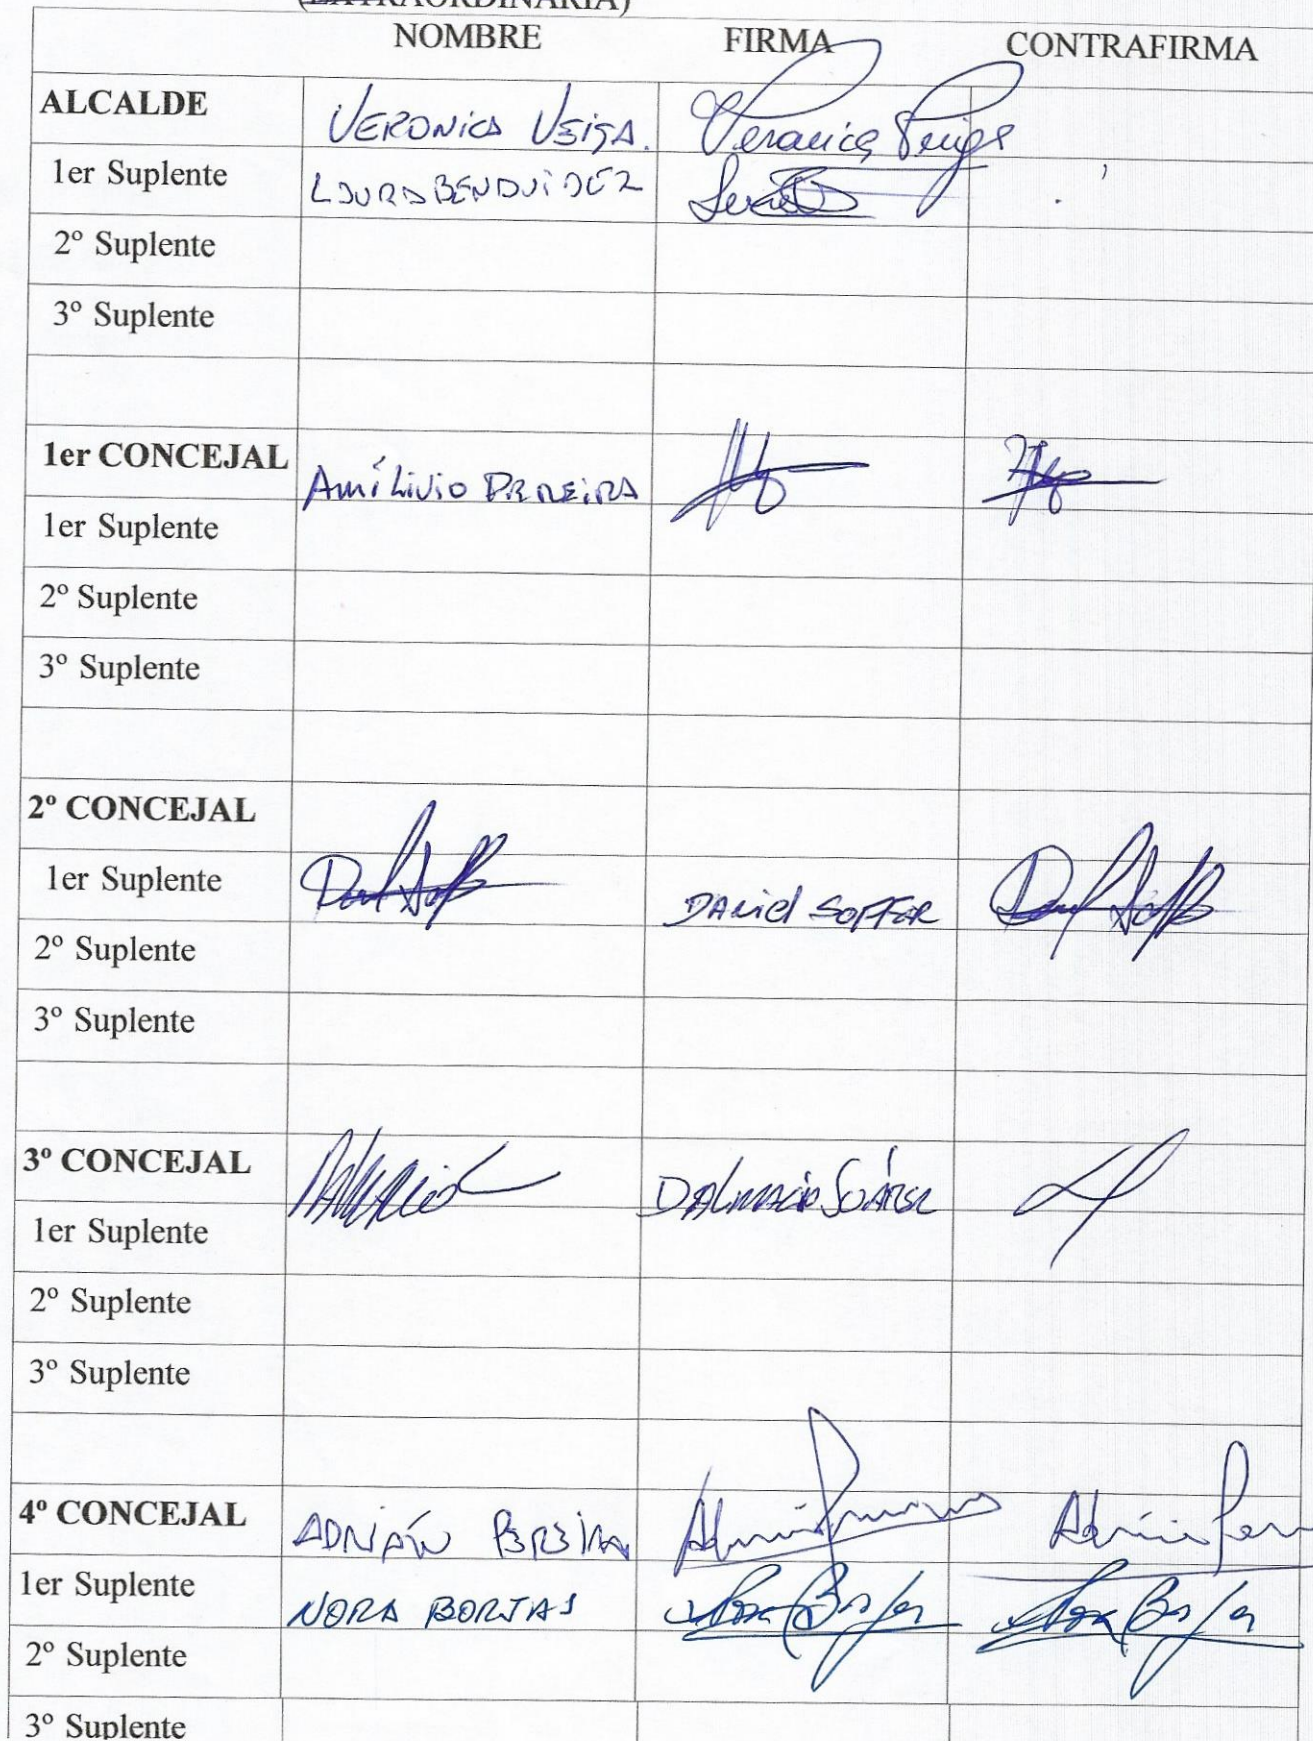 (EXTRAORDINARIA)
NOMBRE FIRMA CONTRAFIRMA
ALCALDE VERONICA VEIGA. Veronica Veiga
1er Suplente LAURA BENAVIDEZ
2º Suplente
3º Suplente
1er CONCEJAL AMÍLIVIO PEREIRA
1er Suplente
2º Suplente
3º Suplente
2º CONCEJAL
1er Suplente DANIEL SOFFER
2º Suplente
3º Suplente
3º CONCEJAL DALMACIO SUÁREZ
1er Suplente
2º Suplente
3º Suplente
4º CONCEJAL ADRIÁN PEREIRA
1er Suplente NORA BORJAS
2º Suplente
3º Suplente